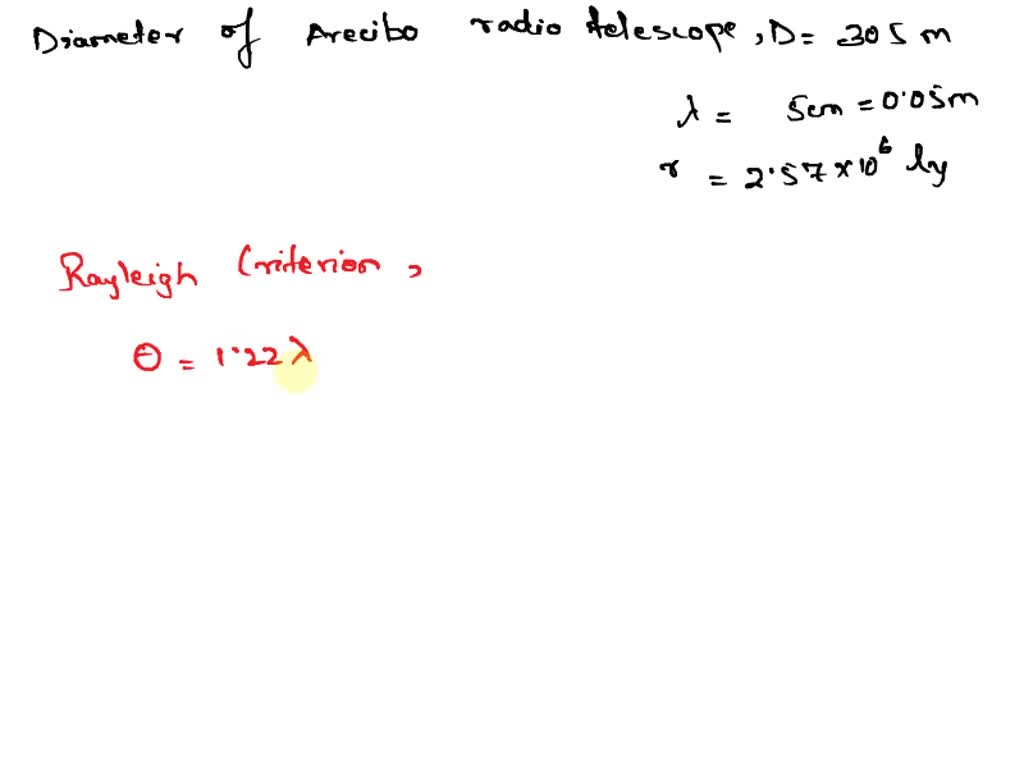 Diameter of Arecibo radio telescope, D = 305 m
λ = 5cm = 0.05m
r = 2.57 × 10⁶ ly
Rayleigh Criterion,
θ = 1.22 λ